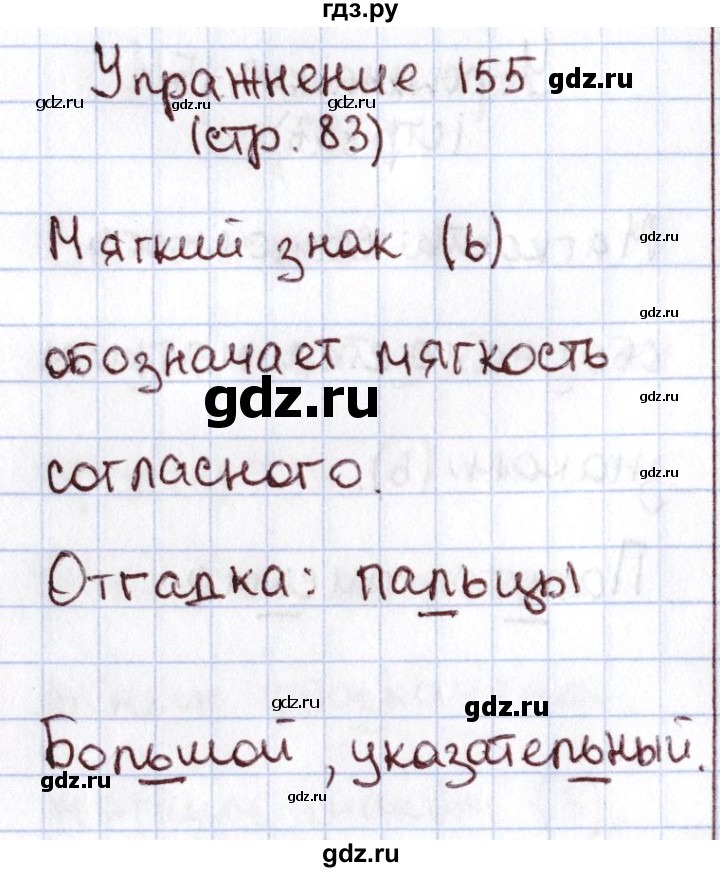 гдз.ру
Упражнение 155
gdz.ru
gdz.ru gdz.ru gdz.ru gdz.ru
(стр. 83)
Мягкий знак (ь)
gdz.ru
gdz.ru
обозначает мягкость
gdz.ru
gdz.ru
согласного.
gdz.ru
Отгадка: пальцы
gdz.ru
gdz.ru
gdz.ru
Большой, указательный.
gdz.ru
gdz.ru
gdz.ru
gdz.ru